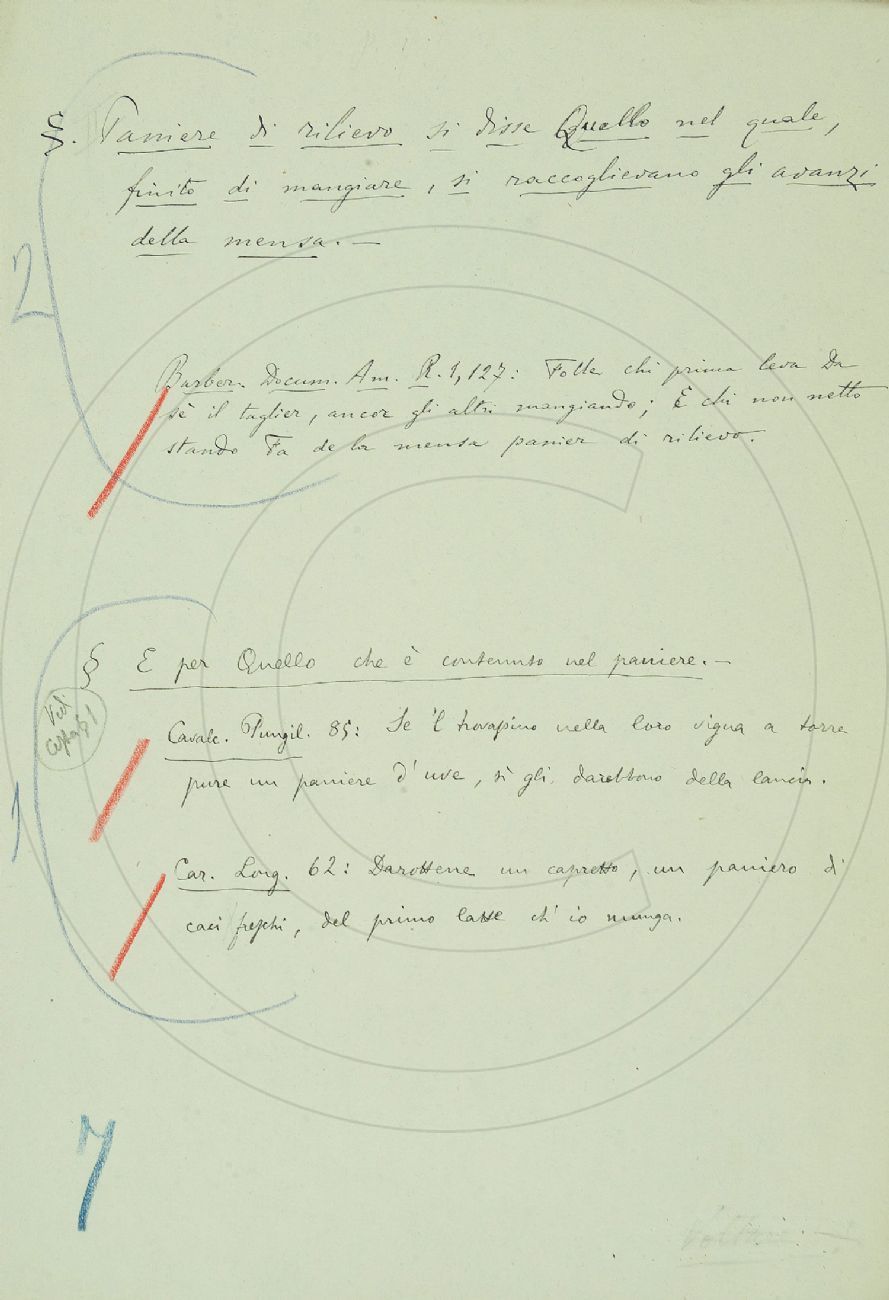 §. Paniere di rilievo si disse Quello nel quale,
finito di mangiare, si raccoglievano gli avanzi
della mensa. —
2
Barber. Docum. Am. R. 1, 127: Folle chi prima leva Da
sè il taglier, ancor gli altri mangiando; E chi non netto
stando Fa de la mensa panier di rilievo.
§ E per Quello che è contenuto nel paniere. —
Vedi
Cavalc. Pungil. 85: Se 'l trovassino nella loro vigna a torre
pure un paniere d'uve, sì gli darebbono della lancia.
1
Car. Long. 62: Darottene un capretto, un paniero di
caci freschi, del primo latte ch'io munga.
7